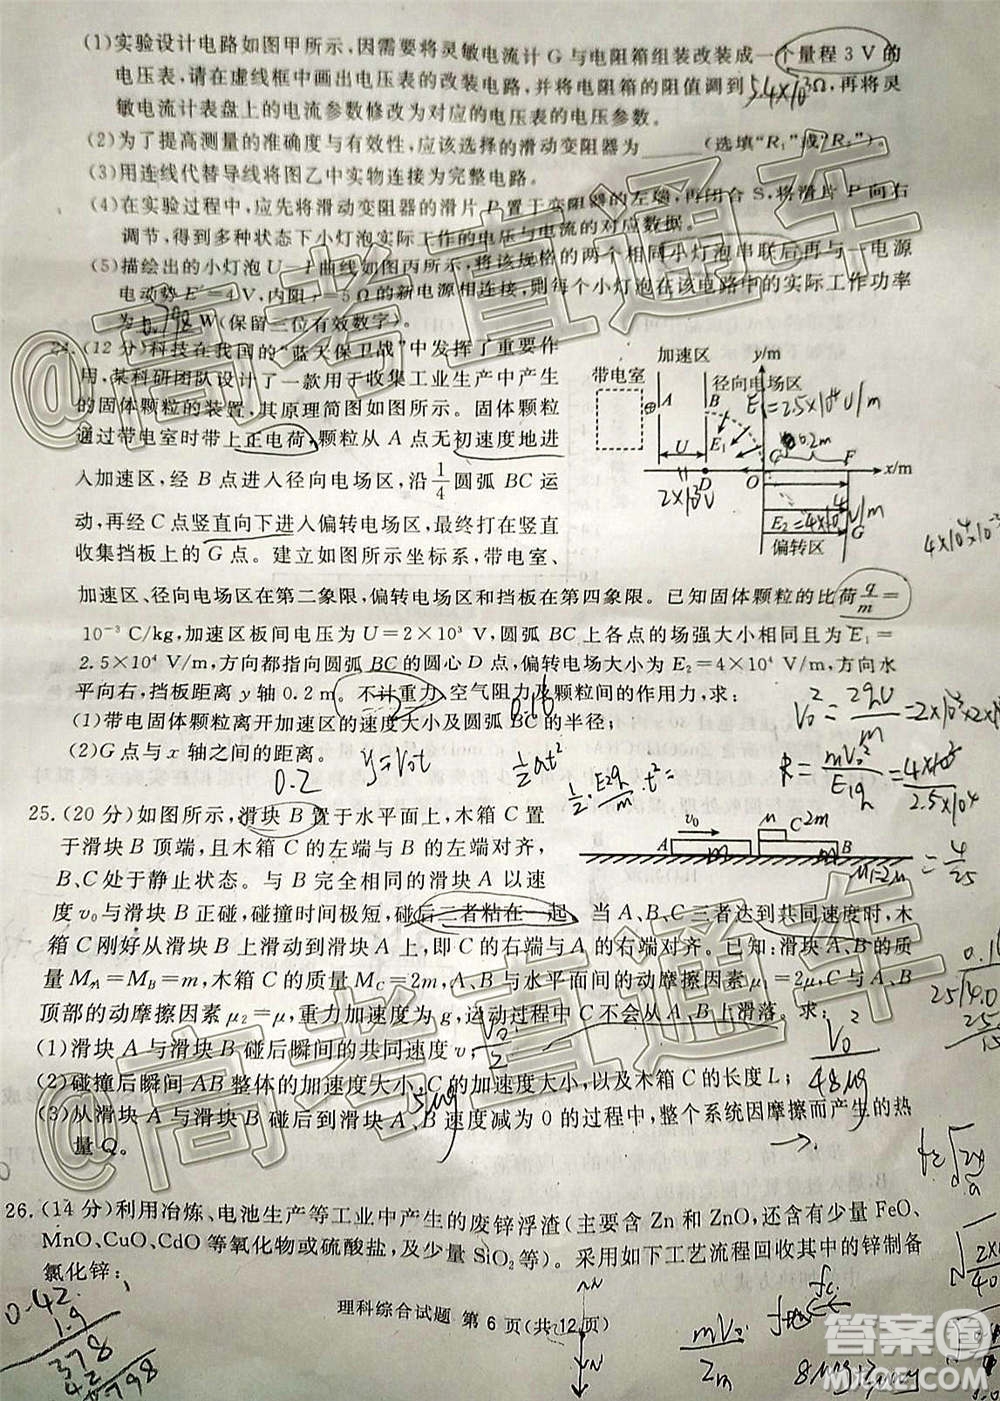 (1)实验设计电路如图甲所示,因需要将灵敏电流计 G 与电阻箱组装改装成一个量程 3 V 的
电压表,请在虚线框中画出电压表的改装电路,并将电阻箱的阻值调到5.4×10³Ω,再将灵
敏电流计表盘上的电流参数修改为对应的电压表的电压参数。
(2)为了提高测量的准确度与有效性,应该选择的滑动变阻器为______(选填“R₁”或“R₂”)。
(3)用连线代替导线将图乙中实物连接为完整电路。
(4)在实验过程中,应先将滑动变阻器的滑片 P 置于变阻器的左端,再闭合 S,将滑片 P 向右
调节,得到多种状态下小灯泡实际工作的电压与电流的对应数据。
(5)描绘出的小灯泡 U-I 曲线如图丙所示,将该规格的两个相同小灯泡串联后再与一电源
电动势 E=4 V,内阻 r=5 Ω 的新电源相连接,则每个小灯泡在该电路中的实际工作功率
为0.798W(保留三位有效数字)。
24.(12 分)科技在我国的“蓝天保卫战”中发挥了重要作
用,某科研团队设计了一款用于收集工业生产中产生
的固体颗粒的装置,其原理简图如图所示。固体颗粒
通过带电室时带上正电荷,颗粒从 A 点无初速度地进
入加速区,经 B 点进入径向电场区,沿 1/4 圆弧 BC 运
动,再经 C 点竖直向下进入偏转电场区,最终打在竖直
收集挡板上的 G 点。建立如图所示坐标系,带电室、
加速区、径向电场区在第二象限,偏转电场区和挡板在第四象限。已知固体颗粒的比荷 q/m =
10⁻³ C/kg,加速区板间电压为 U=2×10³ V,圆弧 BC 上各点的场强大小相同且为 E₁=
2.5×10⁴ V/m,方向都指向圆弧 BC 的圆心 D 点,偏转电场场强大小为 E₂=4×10⁴ V/m,方向水
平向右,挡板距离 y 轴 0.2 m。不计重力、空气阻力及颗粒间的作用力,求:
(1)带电固体颗粒离开加速区的速度大小及圆弧 BC 的半径;
(2)G 点与 x 轴之间的距离。
加速区 y/m
带电室 A B 径向电场区
E₁=2.5×10⁴ V/m
0.2m
U E₁ C F
D O x/m
2×10³V
E₂=4×10⁴ V/m
偏转区 G
0.16
0.2 y=v₀t ½at²
½·E₂q/m·t²
V₀²=2qU/m
R=mV₀²/E₁q=4×10³/2.5×10⁴
=4/25
25.(20 分)如图所示,滑块 B 置于水平面上,木箱 C 置
于滑块 B 顶端,且木箱 C 的左端与 B 的左端对齐,
B、C 处于静止状态。与 B 完全相同的滑块 A 以速
度 v₀ 与滑块 B 正碰,碰撞时间极短,碰后二者粘在一起。当 A、B、C 三者达到共同速度时,木
箱 C 刚好从滑块 B 上滑动到滑块 A 上,即 C 的右端与 A 的右端对齐。已知:滑块 A、B 的质
量 M_A=M_B=m,木箱 C 的质量 M_C=2m,A、B 与水平面间的动摩擦因素 μ₁=2μ,C 与 A、B
顶部的动摩擦因素 μ₂=μ,重力加速度为 g,运动过程中 C 不会从 AB 上滑落。求:
(1)滑块 A 与滑块 B 碰后瞬间的共同速度 v;
(2)碰撞后瞬间 AB 整体的加速度大小,以及木箱 C 的长度 L;
(3)从滑块 A 与滑块 B 碰后到滑块 A、B 速度减为 0 的过程中,整个系统因摩擦而产生的热
量 Q。
v₀ C 2m
A m m B
μ₁=2μ
V₀/2
5μg
48μg
26.(14 分)利用冶炼、电池生产等工业中产生的废锌浮渣(主要含 Zn 和 ZnO,还含有少量 FeO、
MnO、CuO、CdO 等氧化物或硫酸盐,及少量 SiO₂ 等)。采用如下工艺流程回收其中的锌制备
氯化锌:
理科综合试题 第 6 页(共 12 页)
0.42
1.9
378
42
0.798
mV₀
2m
@高考直通车
@高考直通车
答案圈
MXQE.COM